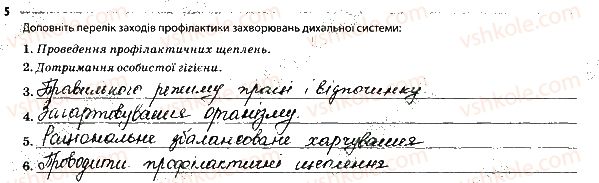 5
Доповніть перелік заходів профілактики захворювань дихальної системи:
1. Проведення профілактичних щеплень.
2. Дотримання особистої гігієни.
3. Правильного режиму праці і відпочинку
4. Загартовування організму.
5. Раціональне збалансоване харчування
6. Проводити профілактичні щеплення